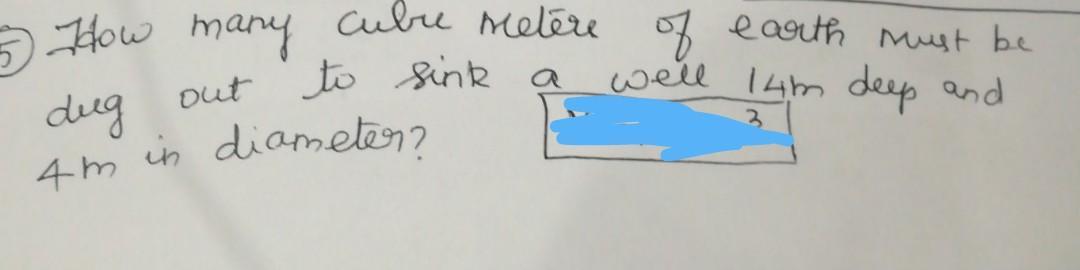 5) How many cubic metere of earth must be
dug out to sink a well 14m deep and
4m in diameter? 3